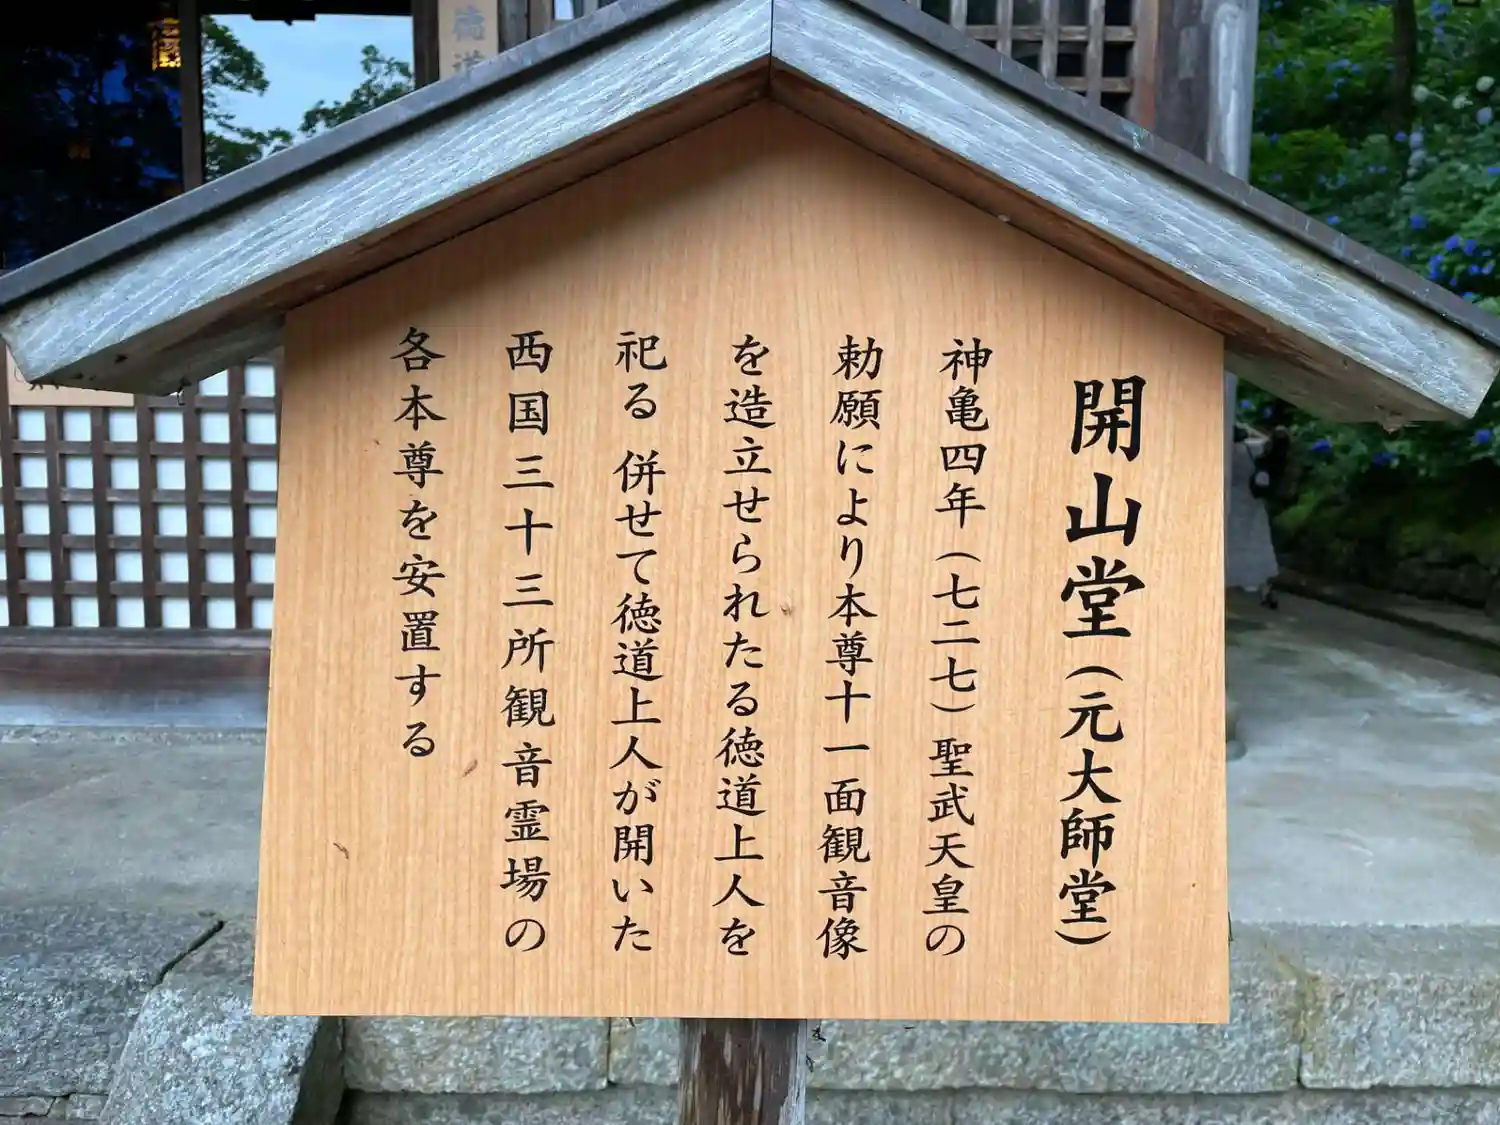 開山堂（元大師堂）
神亀四年（七二七）聖武天皇の
勅願により本尊十一面観音像
を造立せられたる徳道上人を
祀る 併せて徳道上人が開いた
西国三十三所観音霊場の
各本尊を安置する
徳道